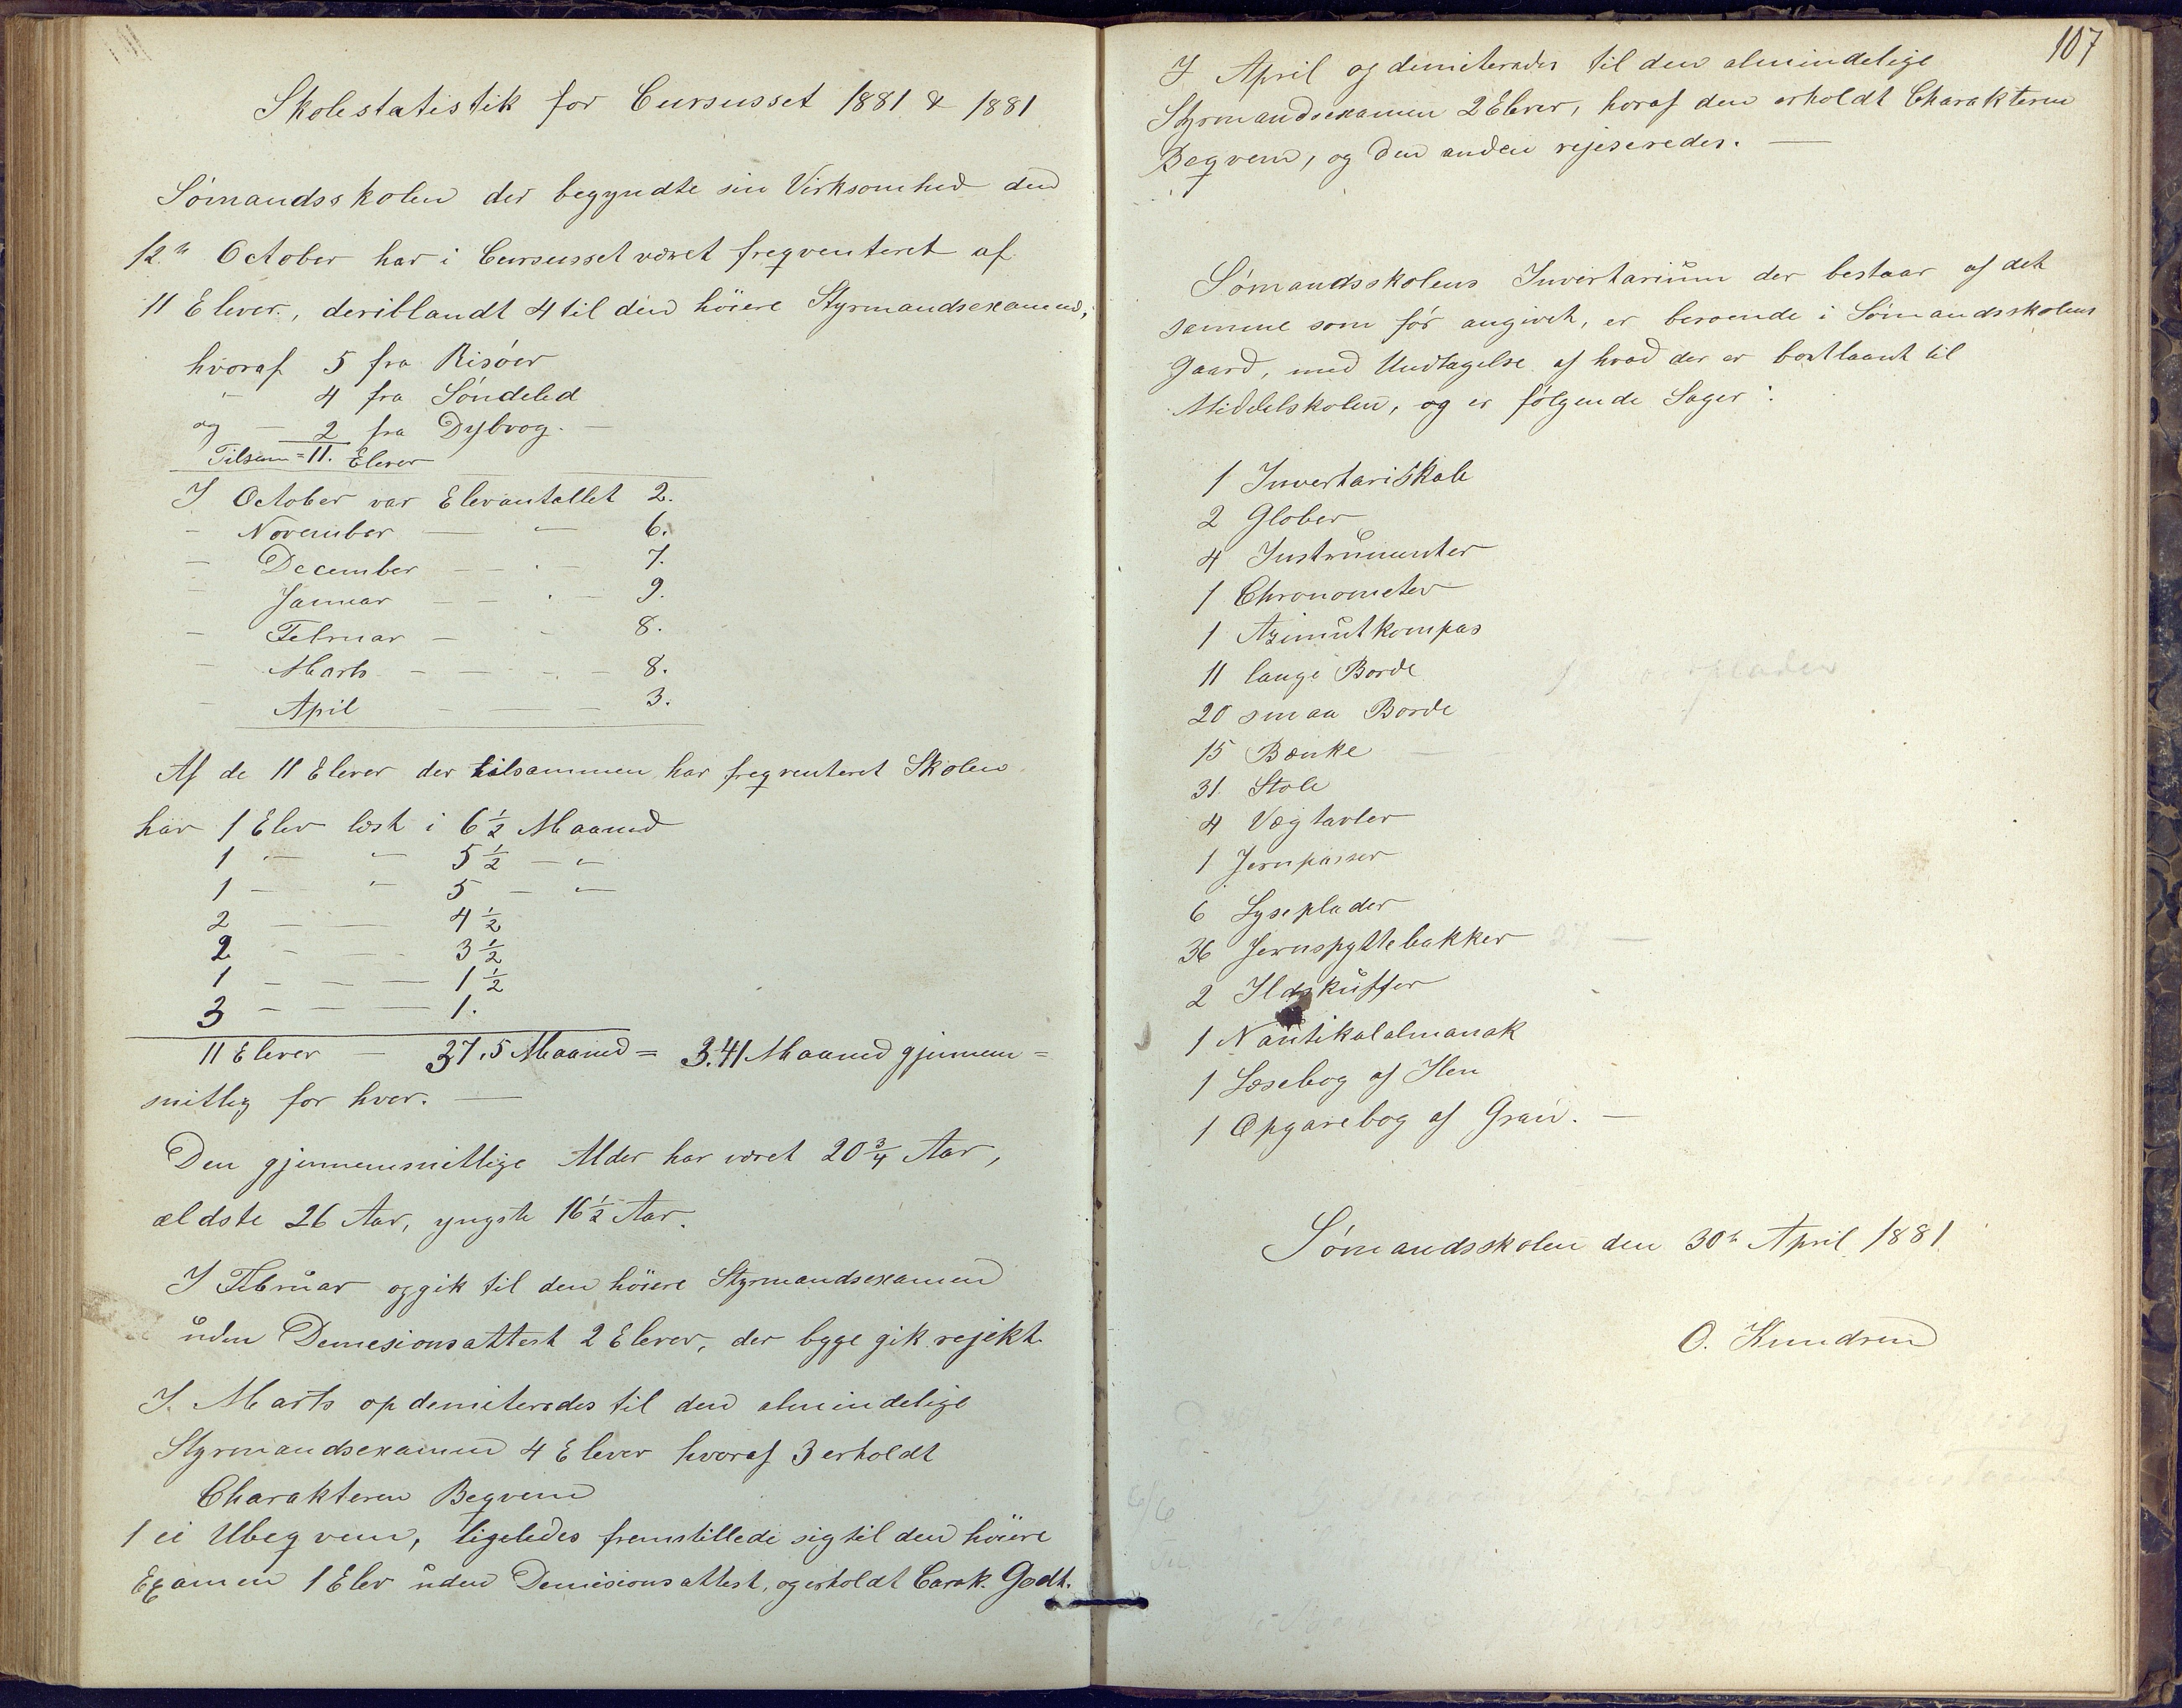 Skolestatistik for Cursusset 1881 & 1881
Sömandsskolen der begyndte sin Virksomhed den
12te October har i Cursusset været freqventeret af
11 Elever, deriblandt 4 til den höiere Styrmandsexamen,
hvoraf 5 fra Risöer
" 4 fra Söndeled
og — 2 fra Dybvog. —
Tilsam = 11. Elever
I October var Elevantallet 2.
- November — " — 6.
- December — — " — 7.
- Januar — — " — 9.
- Februar — - 8.
- Marts - — - — 8.
- April - — — 3.
Af de 11 Elever der tilsammen har freqventeret Skolen
har 1 Elev læst i 6 1/2 Maaned
1 — " — 5 1/2 — " —
1 — " — 5 — " —
2 — — 4 1/2
2 - - 3 1/2
1 - — — 1 1/2
3 - - — 1.
11 Elever — 37,5 Maaned = 3.41 Maaned gjennem=
snitlig for hver. —
Den gjennemsnitlige Alder har været 20 3/4 Aar,
ældste 26 Aar, yngste 16 1/2 Aar.
I Februar opgik til den höiere Styrmandsexamen
uden Demesionsattest 2 Elever, der bgge gik rejekt.
I. Marts opdemiteredes til den almindelige
Styrmandsexamen 4 Elever hvoraf 3 erholdt
Charakteren Beqvem
1 ei Ubeqvem, ligeledes fremstillede sig til den höiere
Examen 1 Elev uden Demisionsattest, og erholdt Carak. Godt.
107
I April og demiteredes til den almindelige
Styrmandsexamen 2 Elever, horaf den erholdt Charakteren
Beqvem, og den anden rejeseredes. —
Sömandsskolens Invertarium der bestaar af det
samme som för angivet, er beroende i Sömandsskolens
Gaard, med Undtagelse af hvad der er bortlaant til
Middelskolen, og er fölgende Sager:
1 Invertariskab
2 Glober
4 Instrumenter
1 Chronometer
1 Azimutkompas
11 lange Borde
20 smaa Borde
15 Bænke
31. Stole
4 Vægtavler
1 Jernpasser
6 Lyseplader
36 Jernspyttebakker
2 Ildskuffer
1 Nautikalalmanak
1 Læsebog af
1 Opgavebog af —
Sömandsskolen den 30te April 1881
O. Knudsen